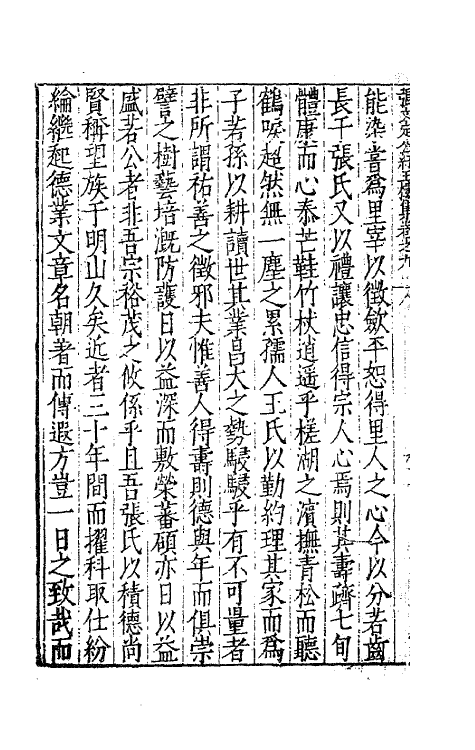 能染嘗爲里宰以徵斂平恕得里人之心今以分耆齒
長于張氏又以禮讓忠信得宗人心焉則其壽躋七旬
體康而心泰芒鞋竹杖逍遥乎槎湖之濱撫青松而聽
鶴唳超然無一塵之累孺人王氏以勤約理其家而爲
子若孫以耕讀世其業昌大之勢駸駸乎有不可量者
非所謂祐善之徵邪夫惟善人得壽則德與年而俱崇
譬之樹藝培溉防護日以益深而敷榮蕃碩亦日以益
盛若公者非吾宗裕茂之攸係乎且吾張氏以積德尚
賢稱望族于明山久矣近者三十年間而擢科取仕紛
綸繼起德業文章名朝著而傳遐方豈一日之致哉而